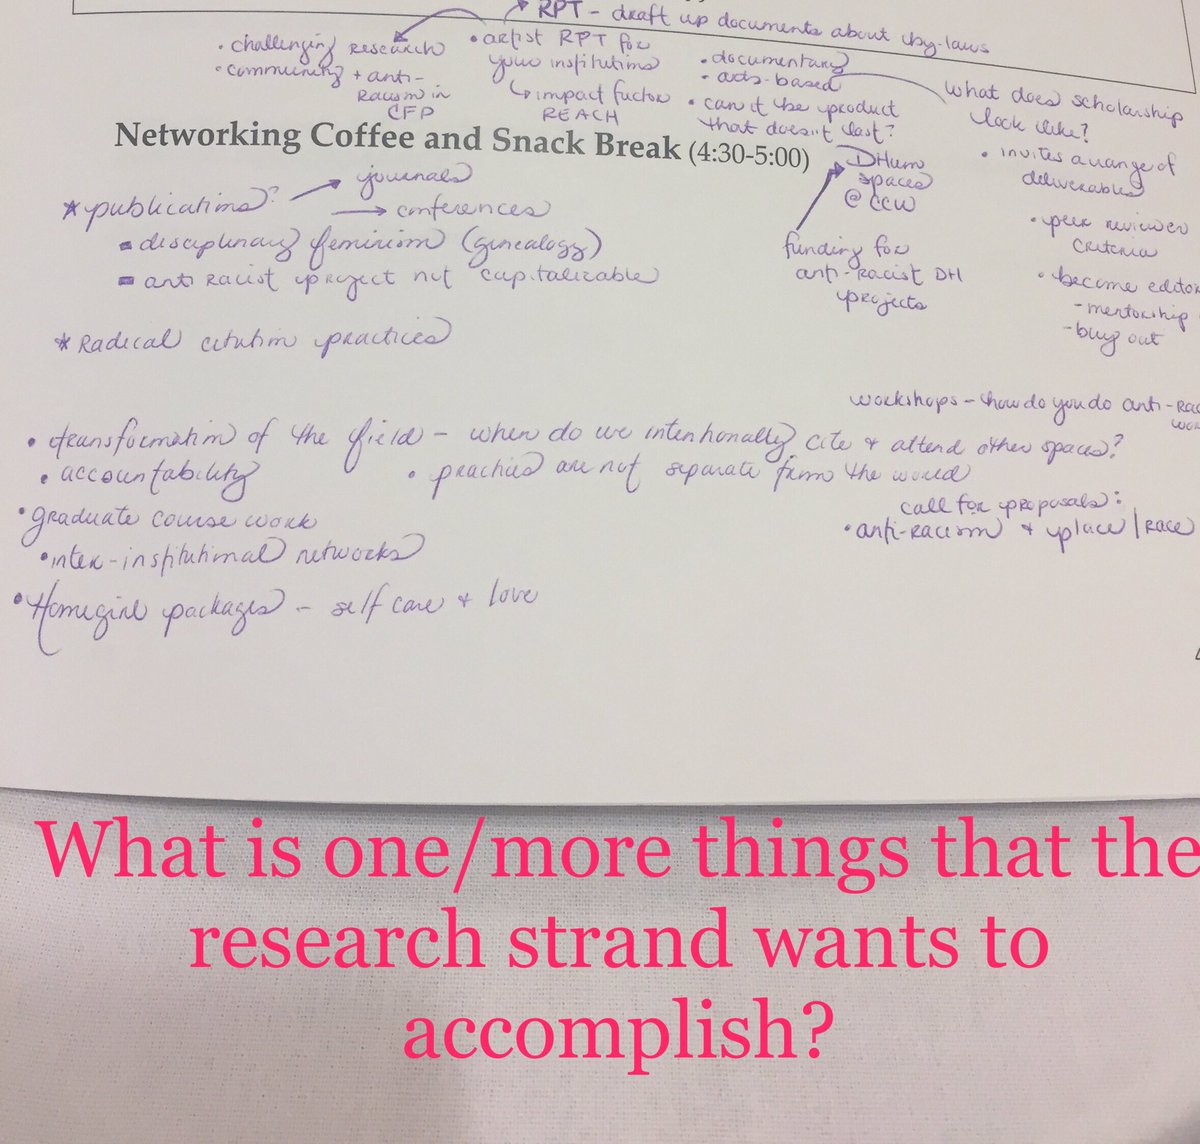 RPT - draft up documents about by-laws
• challenging research
• community + anti-
racism in
CFP
• artist RPT for
your institutions
↳ impact factor
REACH
• documentary
• arts-based
• can it be product
that doesn't last?
what does scholarship
look like?
• invites a range of
deliverables
• peer reviewer
criteria
• become editor
- mentorship
- buy out
Networking Coffee and Snack Break (4:30-5:00)
DHum
spaces
@ CCW
funding for
anti-racist DH
projects
* publications? → journals
→ conferences
- disciplinary feminism (genealogy)
- anti racist project not capitalizable
* Radical citation practices
workshops - how do you do anti-rac
wor
• transformation of the field - when do we intentionally cite + attend other spaces?
• accountability • practices are not separate from the world
call for proposals:
• anti-racism + place/race
• graduate course work
• inter-institutional networks
• Homegirl packages - self care + love
What is one/more things that the
research strand wants to
accomplish?